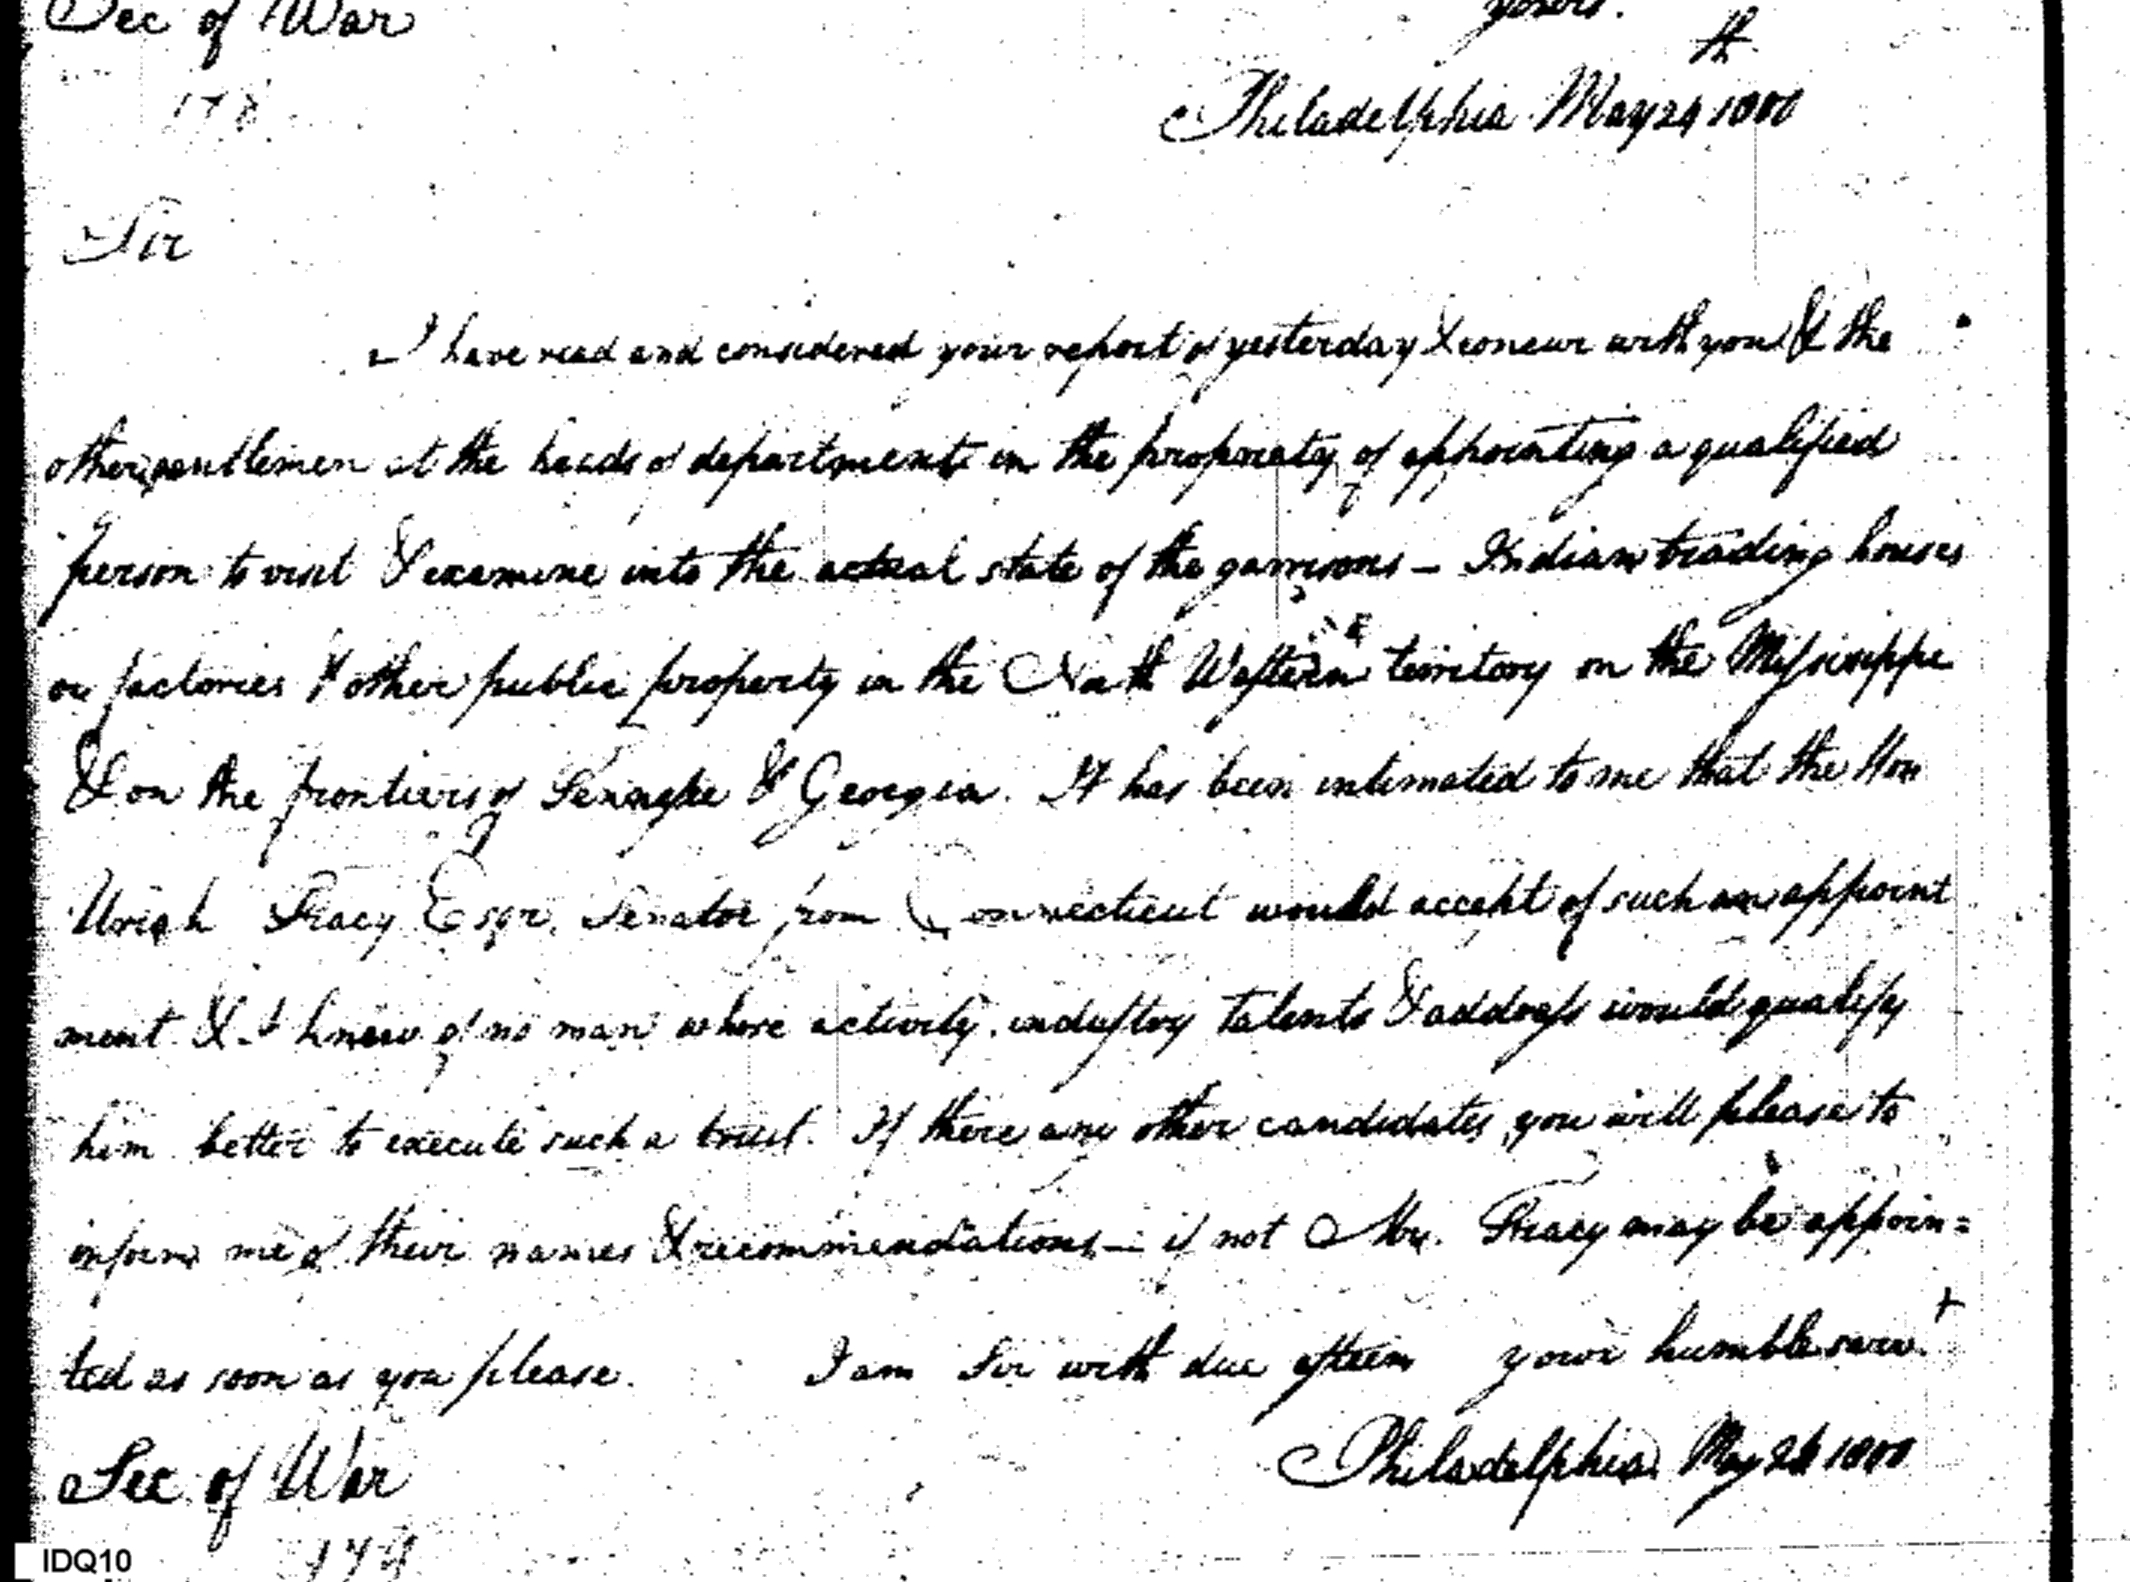 Sec of War
yours.
th
178
Philadelphia May 24 1800
Sir
I have read and considered your report of yesterday & concur with you & the
other gentlemen at the heads of departments in the propriety of appointing a qualified
person to visit & examine into the actual state of the garrisons – Indian trading houses
or factories & other public property in the North Western territory on the Missisippi
& on the frontiers of Tenessee & Georgia. It has been intimated to me that the Hon
Uriah Tracy Esqr. Senator from Connecticut would accept of such an appoint
ment & I know of no man whose activity, industry talents & address would qualify
him better to execute such a trust. If there any other candidates, you will please to
inform me of their names & recommendations – if not Mr. Tracy may be appoin=
ted as soon as you please. I am Sir with due esteem your humble servt
Sec of War
Philadelphia May 1800
179
IDQ10